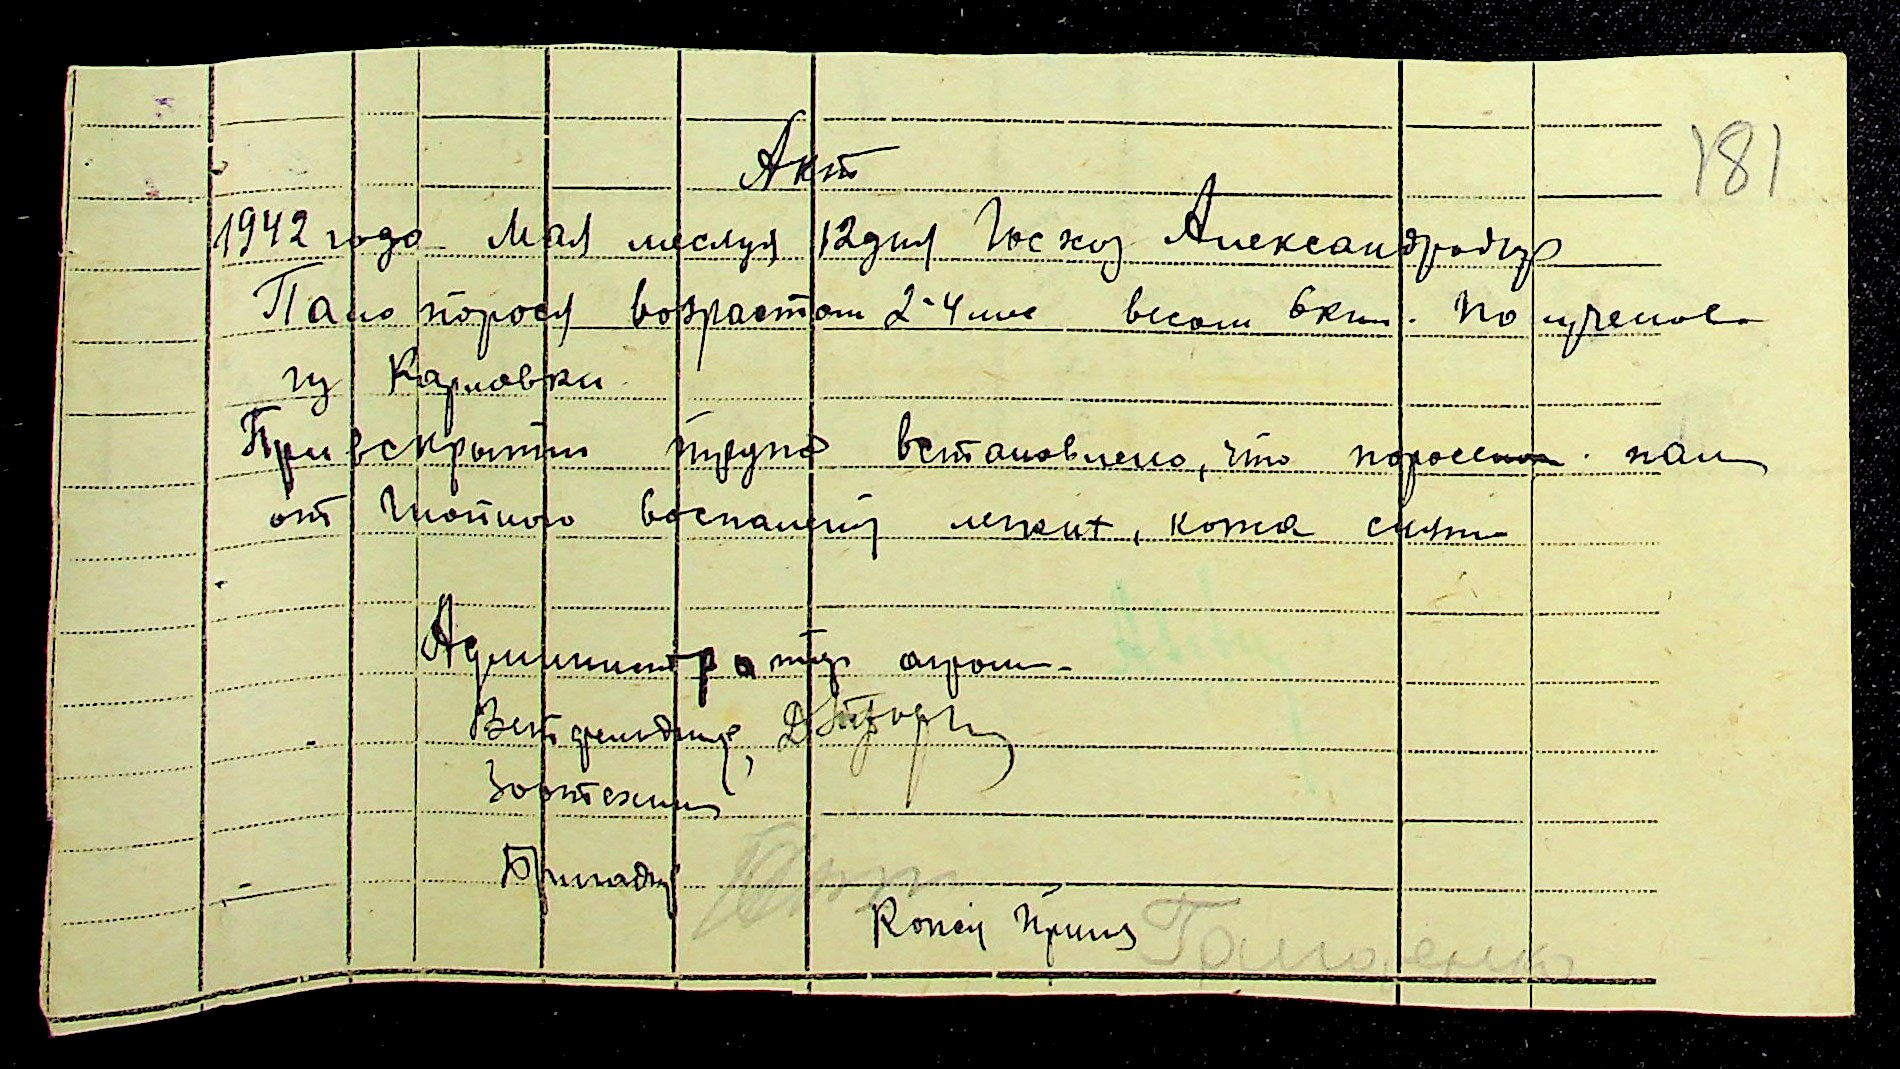 Акт
181
1942 года Мая месяця 12 дня Госхоз Александродар
Пало порося возрастом 2-4 мес весом 6 кил. Полученое
из Карловки
При вскрытии трупа встановлено, что поросенок пал
от Гнойного воспаления легких, кожа снята
Администратор агроном
Ветфельдшер,
Зоотехник
Бригадир
Копей Принял Гамаленко